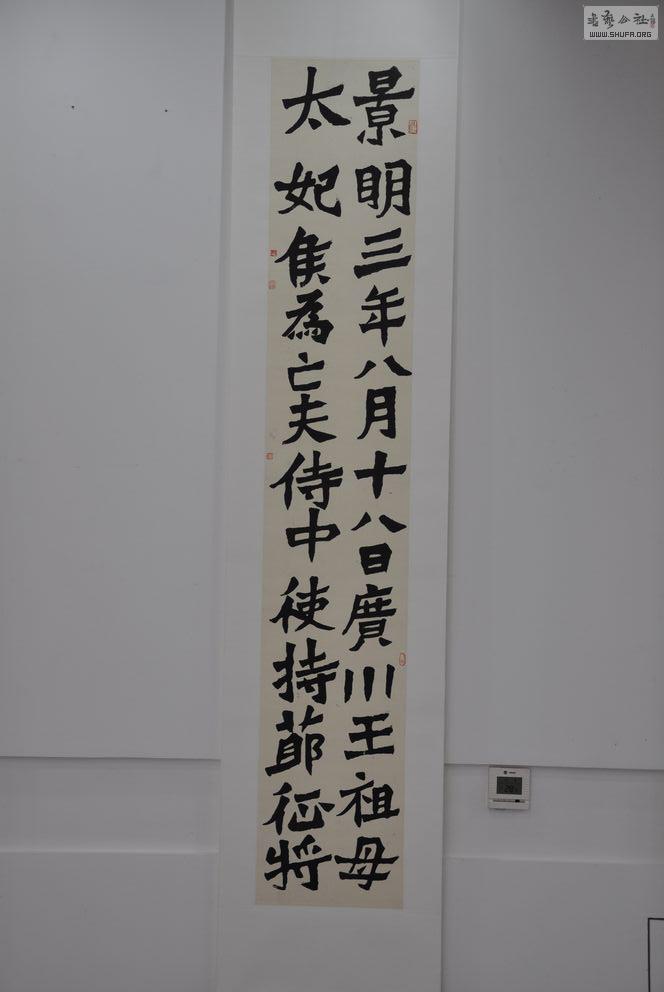 景明三年八月十八日廣川王祖母
太妃侯為亡夫侍中使持節征將
WWW.SHUFA.ORG